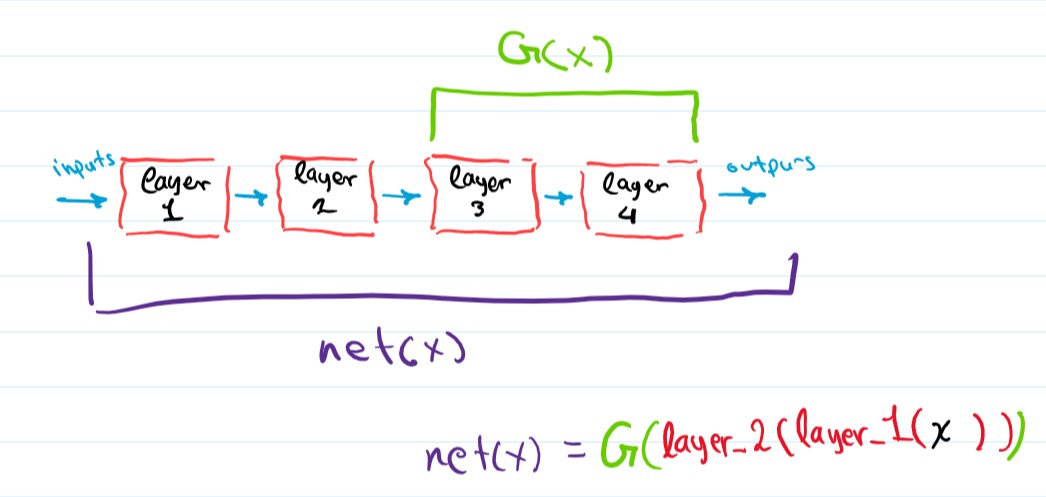 G(x)
inputs
layer 1
layer 2
layer 3
layer 4
outpurs
net(x)
net(x) = G(layer_2(layer_1(x)))